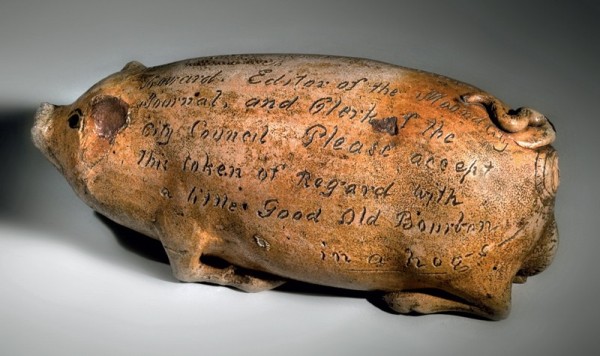 Howard. Editor of the Mound City
Journal, and Clerk of the
City Council Please accept
this token of Regard with
a little Good Old Bourbon
in a hog's